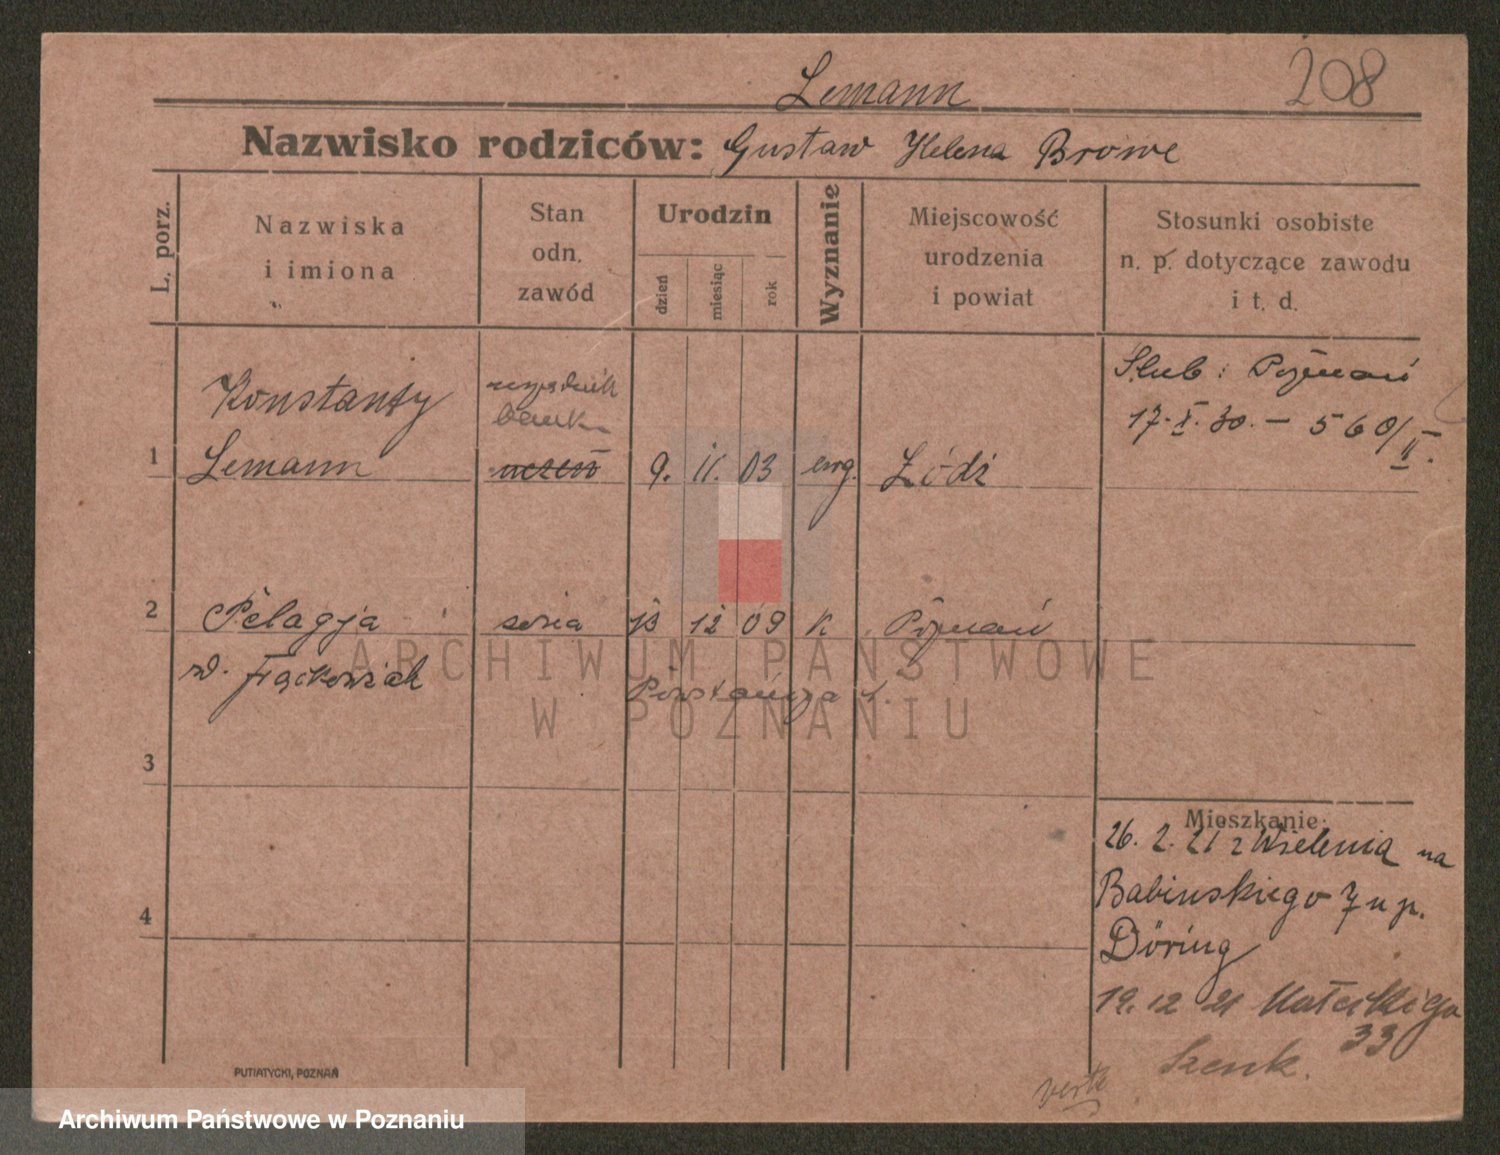 Lemann 208
Nazwisko rodziców: Gustaw Helena Browe
L. porz.
Nazwiska
i imiona
Stan
odn.
zawód
Urodzin
dzień
miesiąc
rok
Wyznanie
Miejscowość
urodzenia
i powiat
Stosunki osobiste
n. p. dotyczące zawodu
i t. d.
Konstanty
urzędnik
bank.
Ślub: Poznań
17. X. 30. — 560/II.
1 Lemann uczeń 9. 11. 03 ewg. Łódź
2 Pelagja żona 12 09 k Poznań
Frąckowiak
3
4
Mieszkanie:
26. 2. 21 z Wielenia na
Babinskiego 7 u p.
Döring
19. 12 21 Małeckiego
33
Szenk.
verte
PUTIATYCKI, POZNAŃ
ARCHIWUM PAŃSTWOWE
W POZNANIU
Archiwum Państwowe w Poznaniu